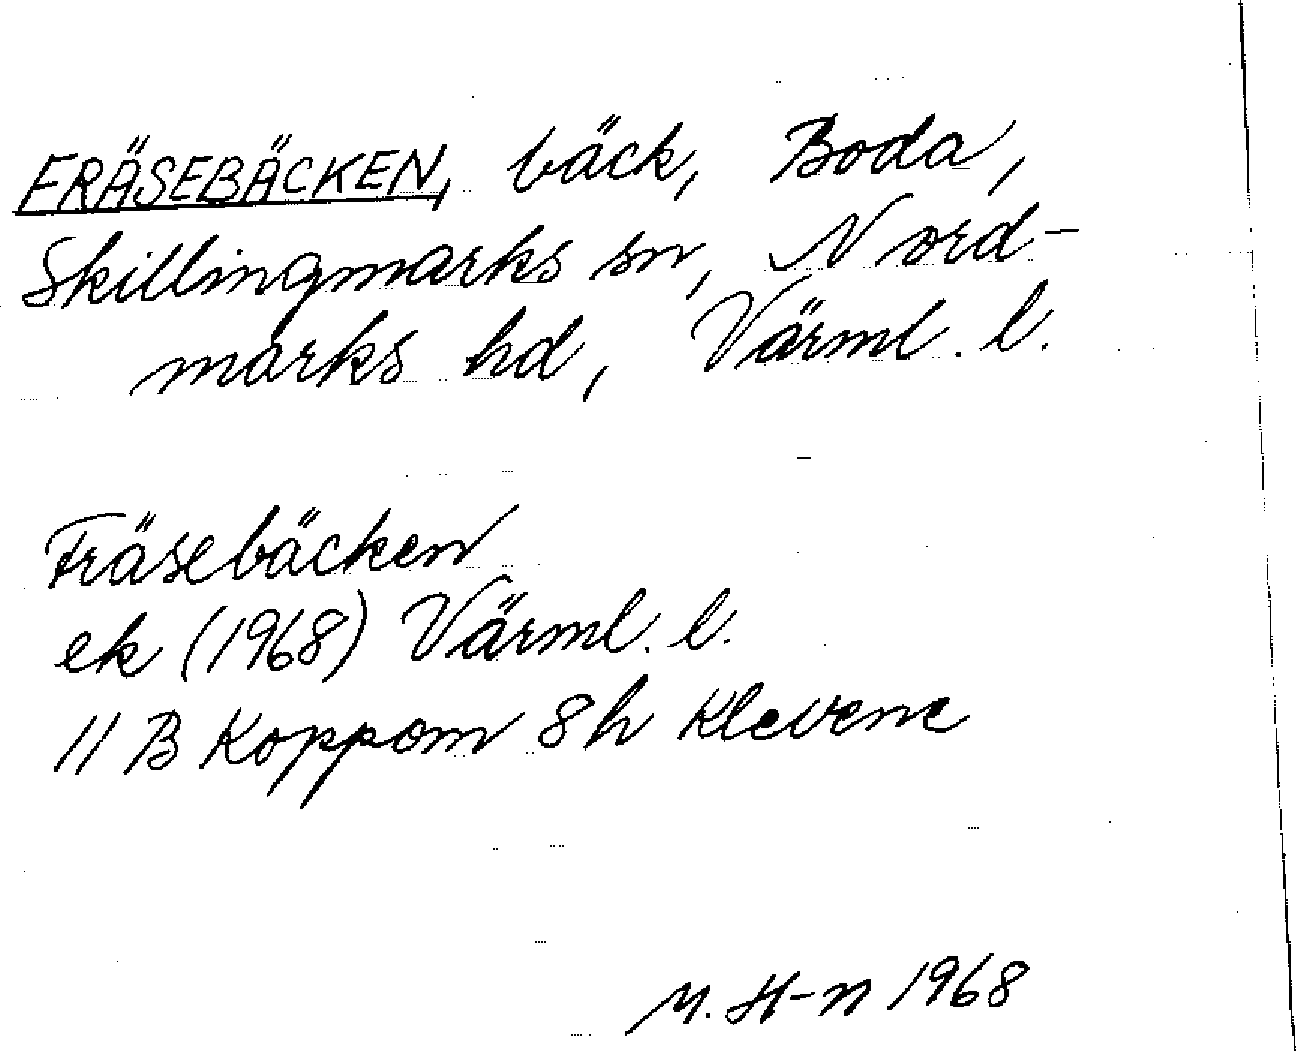 FRÄSEBÄCKEN, bäck, Boda,
Skillingmarks sn, Nord-
marks hd, Värml. l.
Fräsebäcken
ek (1968) Värml. l.
11 B Koppom 8h Klevene
M. H-n 1968